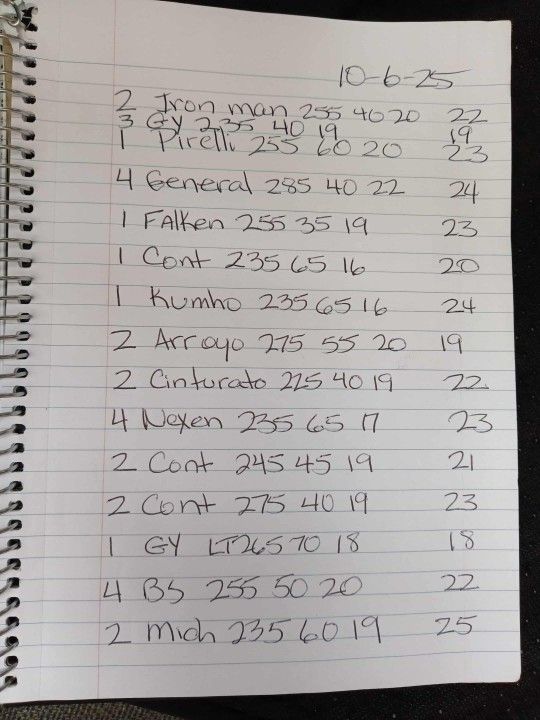 10-6-25
2 Iron man 255 40 20 22
3 GY 235 40 19 19
1 Pirelli 255 60 20 23
4 General 285 40 22 24
1 FAlken 255 35 19 23
1 Cont 235 65 16 20
1 Kumho 235 65 16 24
2 Arroyo 275 55 20 19
2 Cinturato 225 40 19 22
4 Nexen 235 65 17 23
2 Cont 245 45 19 21
2 Cont 275 40 19 23
1 GY LT265 70 18 18
4 BS 255 50 20 22
2 Mich 235 60 19 25